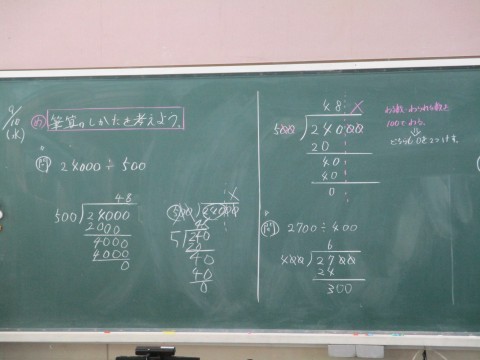 9/10
(水)
め 筆算のしかたを考えよう。
問 24000÷500
48
500)24000
2000
4000
4000
0
X
500)24000
48
5)240
20
40
40
0
48 X
500)24000
20
40
40
0
100でわる。
⇓
どちらも0を2つけす。
問 2700÷400
6
400)2700
24
300